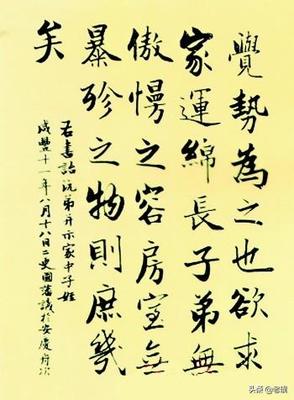 覺勢為之也欲求
家運綿長子弟無
傲慢之容房室無
暴殄之物則庶幾
矣
右書詒沅弟并示家中子姪
咸豐十一年八月十八日二更國藩識於安慶舟次
頭條@老猫